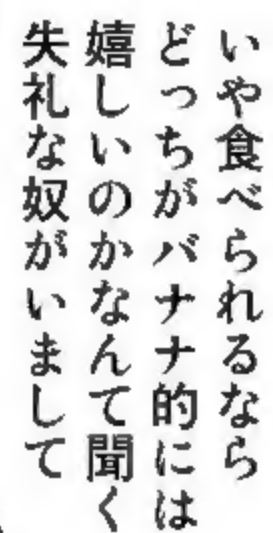 いや食べられるなら
どっちがバナナ的には
嬉しいのかなんて聞く
失礼な奴がいまして